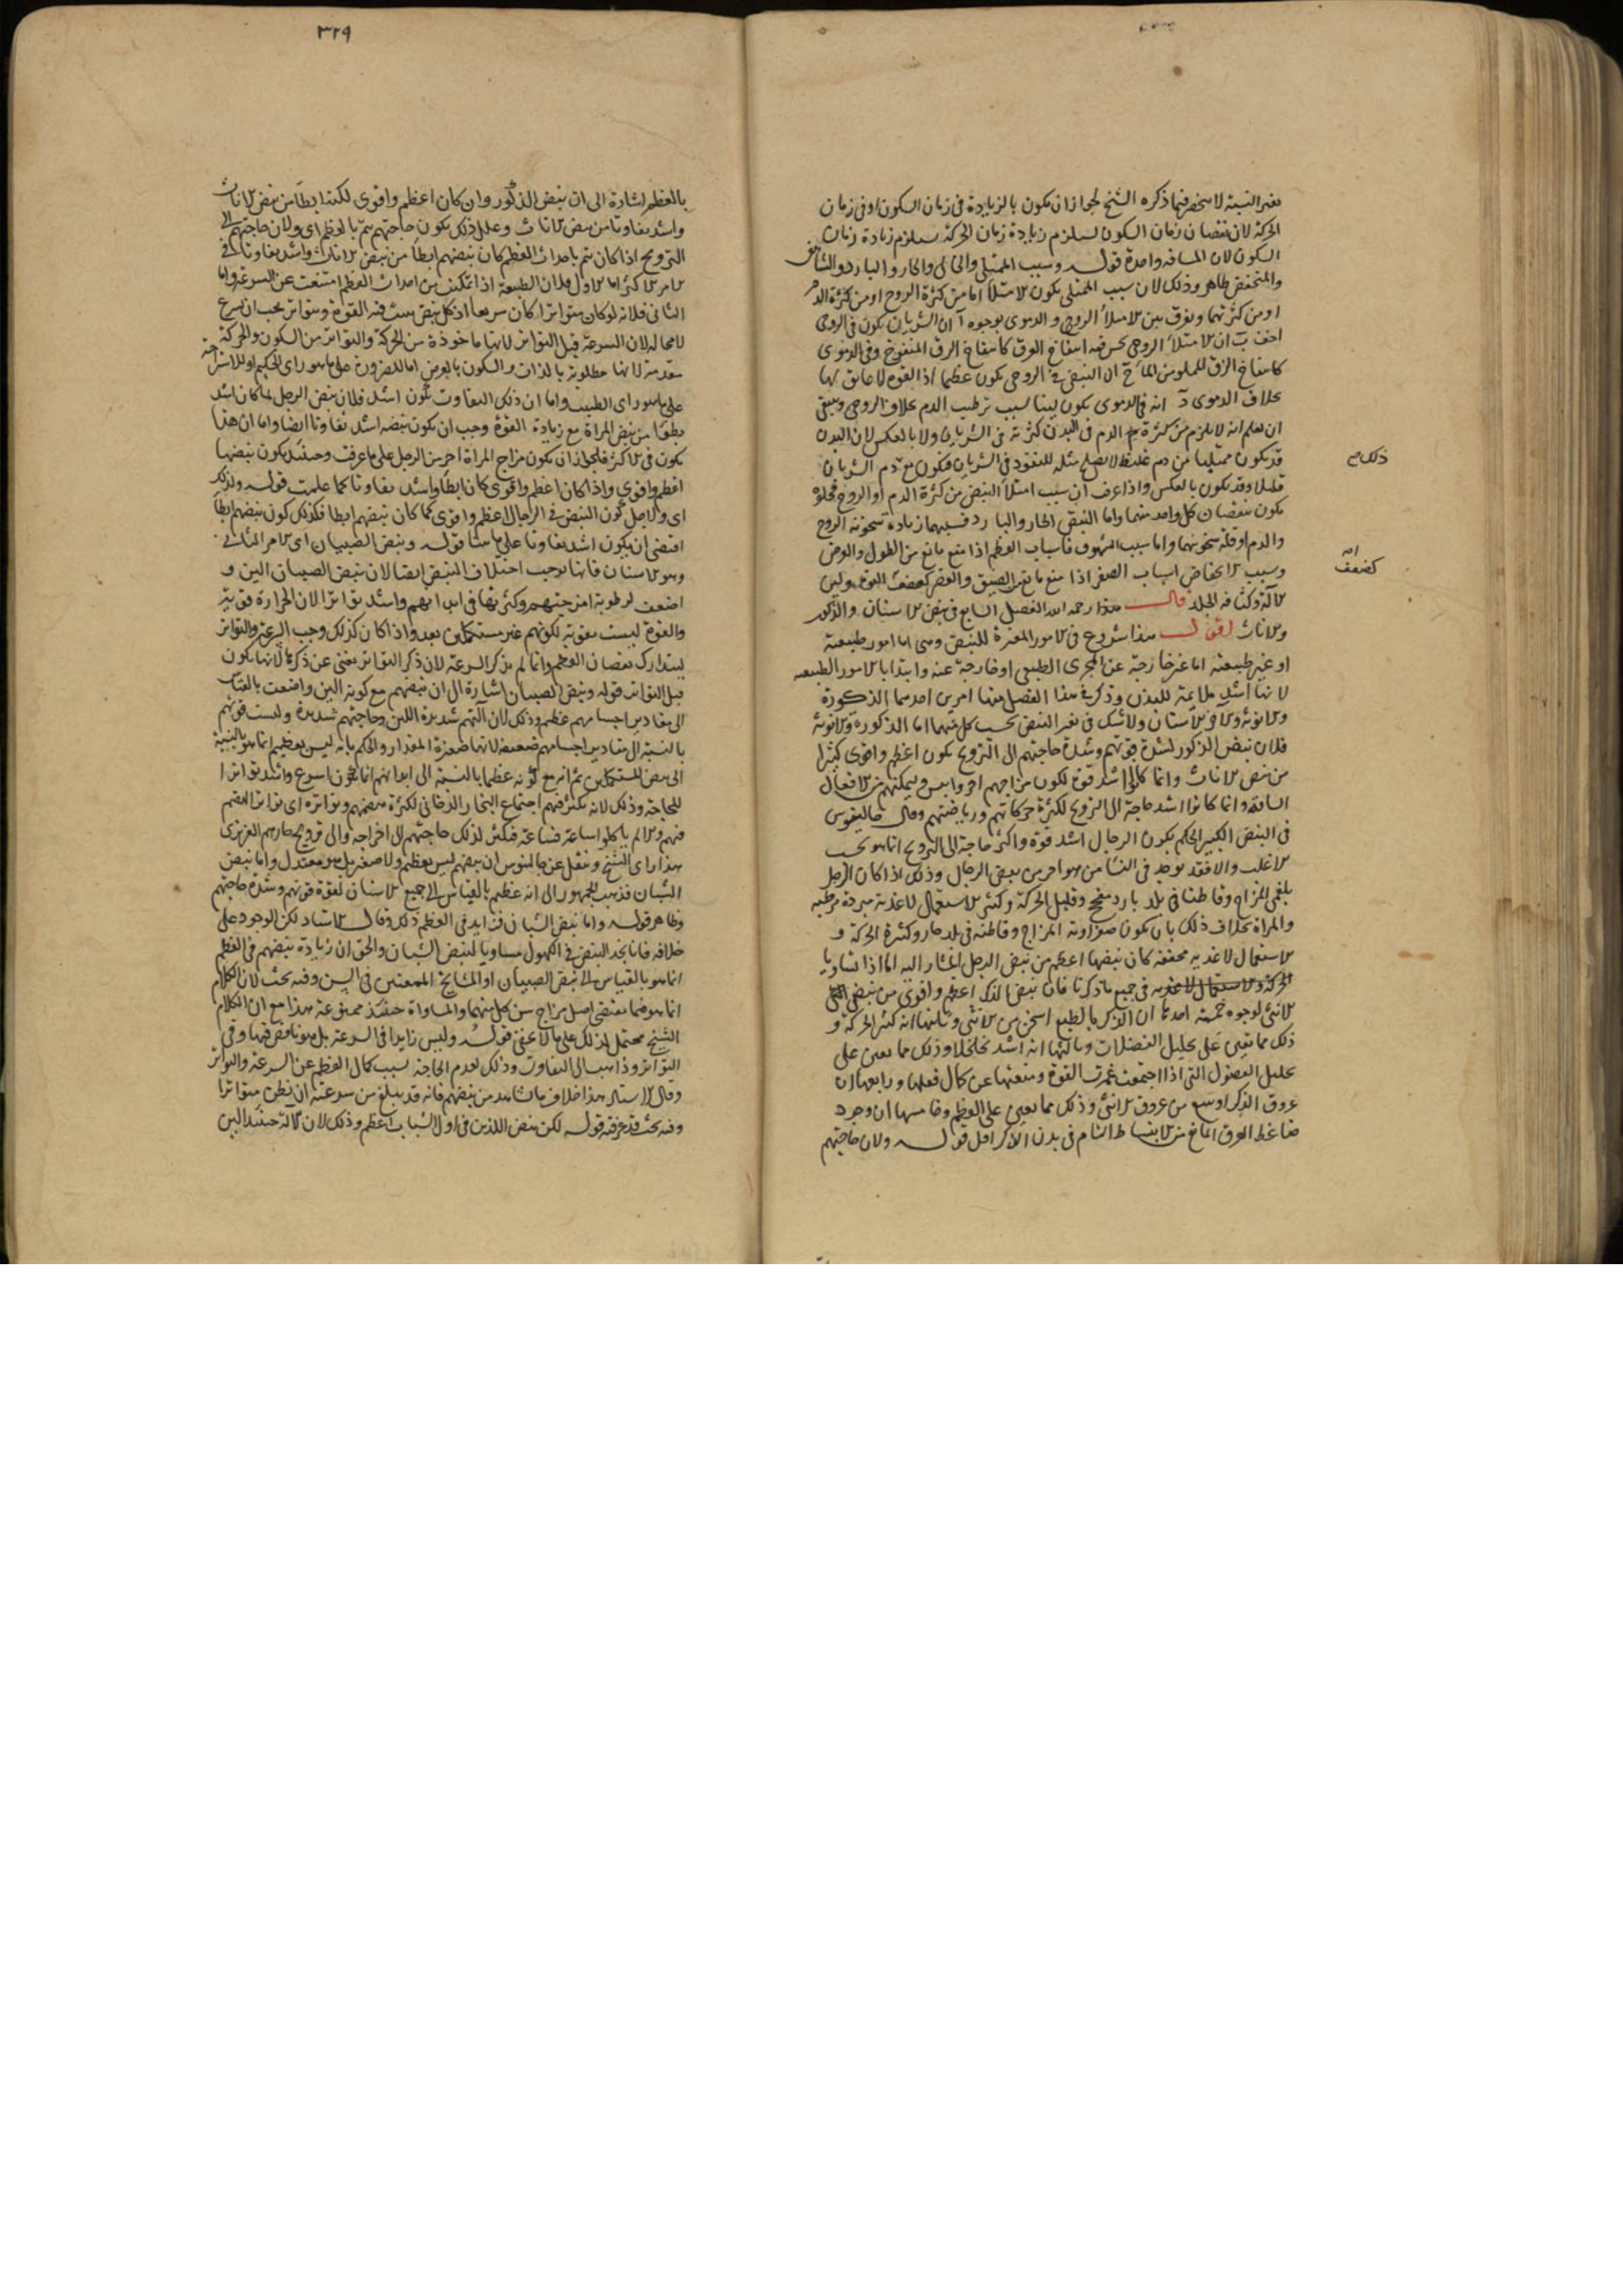 تغير النسبة لا ينحصر فيما ذكره الشيخ لجواز ان يكون بالزيادة في زمان السكون او في زمان
الحركة لان نقصان زمان السكون يستلزم زيادة زمان الحركة يستلزم زيادة زمان
السكون لان المسافة واحدة قوله وسبب الممتلى والخالى والحار والبارد والشاهق
والمنخفض ظاهر وذلك لان سبب الممتلى يكون الامتلا اما من كثرة الروح او من كثرة الدم
او من كثرتهما ويفرق بين الامتلا الروحى و الدموى بوجوه آ ان الشريان يكون في الروحى
اخف ب ان الامتلا الروحى يحس فيه انتفاخ العرق كانتفاخ الزق المنفوخ وفى الدموى
كانتفاخ الزق المملو من الما ج ان النبض في الروحى يكون عظيما اذ القوة لا عائق لها
بخلاف الدموى د انه في الدموى يكون لينا بسبب ترطيب الدم بخلاف الروحى وينبغى
ان يعلم انه لا يلزم من كثرة الدم في البدن كثرته في الشريان ولا بالعكس لان البدن
قد يكون ممتليا من دم غليظ لا يصلح مثله للنفوذ في الشريان فيكون مع ذلك دم الشريان
قليلا وقد يكون بالعكس واذا عرف ان سبب امتلا النبض من كثرة الدم او الروح فخلوه
يكون بنقصان كل واحد منهما واما النبض الحار والبارد فسببهما زيادة سخونة الروح
والدم او قلة سخونتهما واما سبب الشهوق فاسباب العظم اذا منع مانع من الطول والعرض
وسبب الانخفاض اسباب الصغر اذا منع مانع من الضيق والقصر كضعف القوة ولين
الآلة وكثافة الجلد قال هذا رحمه الله الفصل السابع في نبض الاسنان والذكور
والاناث اقول هذا شروع في الامور المغيرة للنبض وهى اما امور طبيعية
او غير طبيعية اما غير خارجة عن المجرى الطبيعى او خارجة عنه وابتدا بالامور الطبيعية
لانها اشد ملائمة للبدن وذكر في هذا الفصل منها امرين احدهما الذكورة
والانوثة والآخر الاسنان ولا شك في تغير النبض بحسب كل منهما اما الذكورة والانوثة
فلان نبض الذكور لشدة قوتهم وشدة حاجتهم الى الترويح يكون اعظم واقوى كثيرا
من نبض الاناث وانما كانوا اشد قوة لكون مزاجهم احر وايبس وتمكنهم من الافعال
الشاقة وانما كانوا اشد حاجة الى الترويح لكثرة حركاتهم ورياضتهم وقال جالينوس
في النبض الكبير الحكم بكون الرجال اشد قوة واكثر حاجة الى الترويح انما هو بحسب
الاغلب والا فقد يوجد في النسا من هو احر من بعض الرجال وذلك اذا كان الرجل
بلغمى المزاج وقاطنا في بلد بارد وقليل الحركة وكثير الاستعمال لاغذية مبردة مرطبة
والمراة بخلاف ذلك بان يكون صفراوية المزاج وقاطنة في بلد حار وكثيرة الحركة و
الاستعمال لاغذية مجففة كان نبضها اعظم من نبض الرجل المشار اليه اما اذا تساويا
في جميع ما ذكرنا فان نبض الذكر اعظم واقوى من نبض
الانثى لوجوه خمسة احدها ان الذكر بالطبع اسخن من الانثى وثانيها انه كثير الحركة و
ذلك مما يعين على تحليل الفضلات وثالثها انه اشد تخلخلا وذلك مما يعين على
تحليل الفضول التى اذا اجتمعت غمرت القوة ومنعتها عن كمال فعلها ورابعها ان
عروق الذكر اوسع من عروق الانثى وذلك مما يعين على العظم وخامسها ان وجود
ضاغط العرق المانع من الانبساط التام في بدن الذكر اقل قوله ولان حاجتهم
ذلك مع
كضعف
٣٢٩
بالعظم اشارة الى ان نبض الذكور وان كان اعظم واقوى لكنه ابطا من نبض الاناث
واشد تفاوتا من نبض الاناث وعلل ذلك بكون حاجتهم تتم بالعظم اى ولان حاجتهم الى
الترويح اذا كان يتم باحداث العظم كان نبضهم ابطا من نبض الاناث واشد تفاوتا في
الامر الاكثر اما الاول فلان الطبيعة اذا تمكنت من احداث العظم امتنعت عن السرعة واما
الثانى فلانه لو كان متواترا كان سريعا اذ كل نبض يثبت فيه القوة ويتواتر يجب ان يسرع
لا محالة لان السرعة قبل التواتر لانها ماخوذة من الحركة والتواتر من السكون والحركة
متقدمة لانها مطلوبة بالذات والسكون بالعرض اما للضرورة على ما هو راى الحكيم او للاستراحة
على ما هو راى الطبيب واما ان ذلك التفاوت يكون اشد فلان نبض الرجل لما كان اشد
بطوا من نبض المراة مع زيادة القوة وجب ان يكون نبضه اشد تفاوتا ايضا واما ان هذا
يكون في الاكثر فلجواز ان يكون مزاج المراة احر من الرجل على ما عرفت وحينئذ يكون نبضها
اعظم واقوى واذا كان اعظم واقوى كان ابطا واشد تفاوتا كما علمت قوله ولذلك
اى ولاجل كون النبض في الرجال اعظم واقوى كما كان نبضهم ابطا فكذلك كون نبضهم ابطا
اقتضى ان يكون اشد تفاوتا على ما بينا قوله ونبض الصبيان اى الامر الثانى
وهو الاسنان فانها توجب اختلاف النبض ايضا لان نبض الصبيان الين و
اضعف لرطوبة امزجتهم وكثرتها في ابدانهم واشد تواترا لان الحرارة قوية
والقوة ليست بقوية لكونهم غير مستكملين بعد واذا كان كذلك وجب السرعة والتواتر
ليتدارك نقصان العظم وانما لم يذكر السرعة لان ذكر التواتر يغنى عن ذكرها لانها يكون
قبل التواتر قوله ونبض الصبيان اشارة الى ان نبضهم مع كونه الين واضعف بالقياس
الى مقادير اجسامهم عظيم وذلك لان آلتهم شديدة اللين وحاجتهم شديدة وليست قوتهم
بالنسبة الى مقادير اجسامهم ضعيفة لانها صغيرة المقدار والحكم بانه ليس بعظيم انما هو بالنسبة
الى نبض المستكملين ثم انه مع كونه عظيما بالنسبة الى ابدانهم انما يكون اسرع واشد تواترا
للحاجة وذلك لانه يكثر فيهم اجتماع البخار الدخانى لكثرة هضمهم وتواتره اى تواتر الهضم
فيهم ولانهم ياكلوا ساعة فساعة فيكثر لذلك حاجتهم الى اخراجه والى ترويح حارهم الغريزى
هذا راى الشيخ ونقل عن جالينوس ان نبضهم ليس بعظيم ولا صغير بل هو معتدل واما نبض
الشبان فذهب الجمهور الى انه عظيم بالقياس الى جميع الاسنان لقوة قوتهم وشدة حاجتهم
وظاهر قوله واما نبض الشبان فزايد في العظم ذلك وقال الاستاد لكن الوجود على
خلافه فانا نجد النبض في الكهول مساويا لنبض الشبان والحق ان زيادة نبضهم في العظم
انما هو بالقياس الى نبض الصبيان او المشايخ الممعنين في السن وفيه بحث لان الكلام
انما هو فيما يقتضى اصل مزاج سن كل منهما والمساواة حينئذ ممنوعة هذا مع ان الكلام
الشيخ محتمل لذلك على ما لا يخفى قوله وليس زايدا في السرعة بل هو ناقص فيها وفى
التواتر وذاهب الى التفاوت وذلك لعدم الحاجة بسبب كمال العظم عن السرعة والتواتر
وقال الاستاد هذا خلاف ما نشاهد من نبضهم فانه قد يبلغ من سرعته ان يظن متواترا
وفيه بحث قد عرفته قوله لكن نبض الذين في اول الشباب اعظم وذلك لان الآلة حينئذ الين